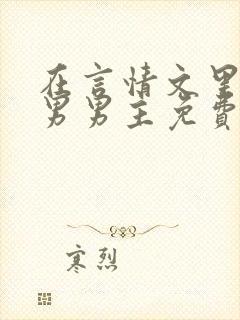 在言情文里
男男主免費
寒烈